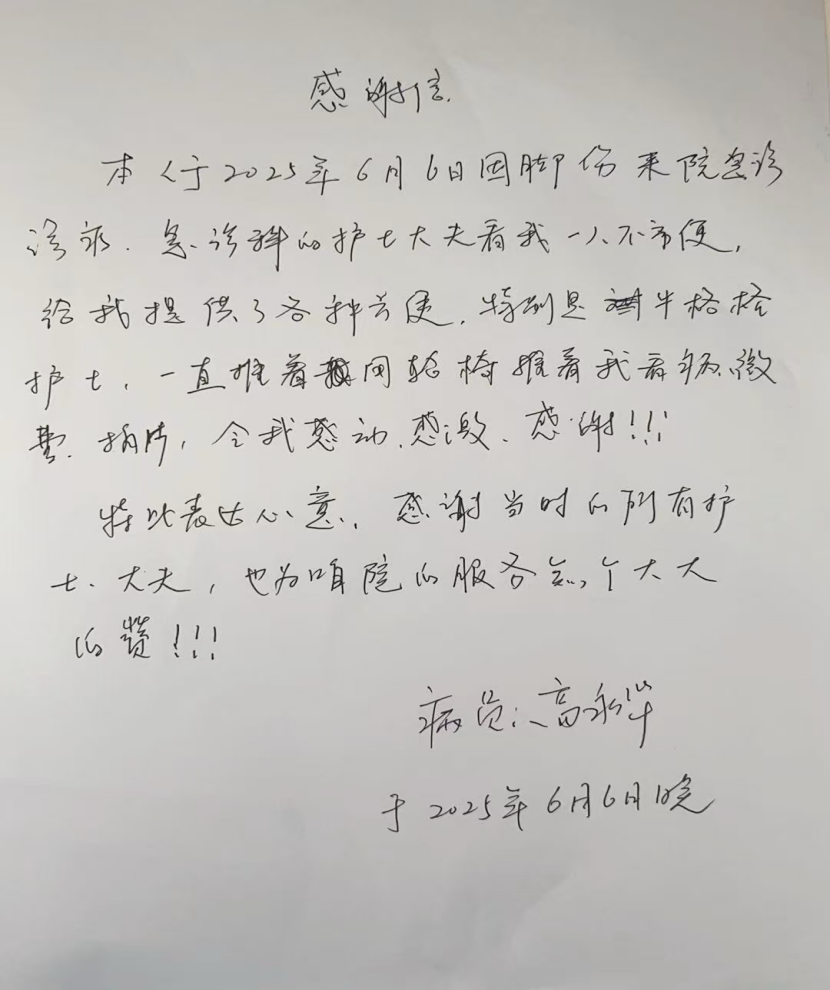 感谢信
本人于2025年6月6日因脚伤来院急诊
诊疗.急诊科的护士大夫看我一人不方便,
给我提供了各种方便,特别是牛格格
护士,一直推着用轮椅推着我看病、缴
费、拍片,令我感动、感激、感谢!!!
特此表达心意,感谢当时的所有护
士、大夫,也为咱院的服务点个大大
的赞!!!
病员:高永
于2025年6月6日晚